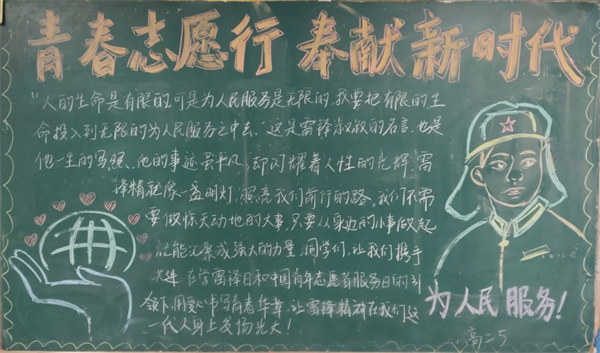 青春志愿行 奉献新时代
"人的生命是有限的,可是为人民服务是无限的,我要把有限的生
命投入到无限的为人民服务之中去.这是雷锋叔叔的名言,也是
他一生的写照,他的事迹虽平凡,却闪耀着人性的光辉,雷
锋精神就像一盏明灯,照亮我们前行的路,我们不需
要做惊天动地的大事,只要从身边的小事做起
就能汇聚成强大的力量,同学们,让我们携手
共进,在学雷锋日和中国青年志愿者服务日的引
领下,用爱心书写青春华章,让雷锋精神在我们这
一代人身上发扬光大!
为人民服务!
高二5